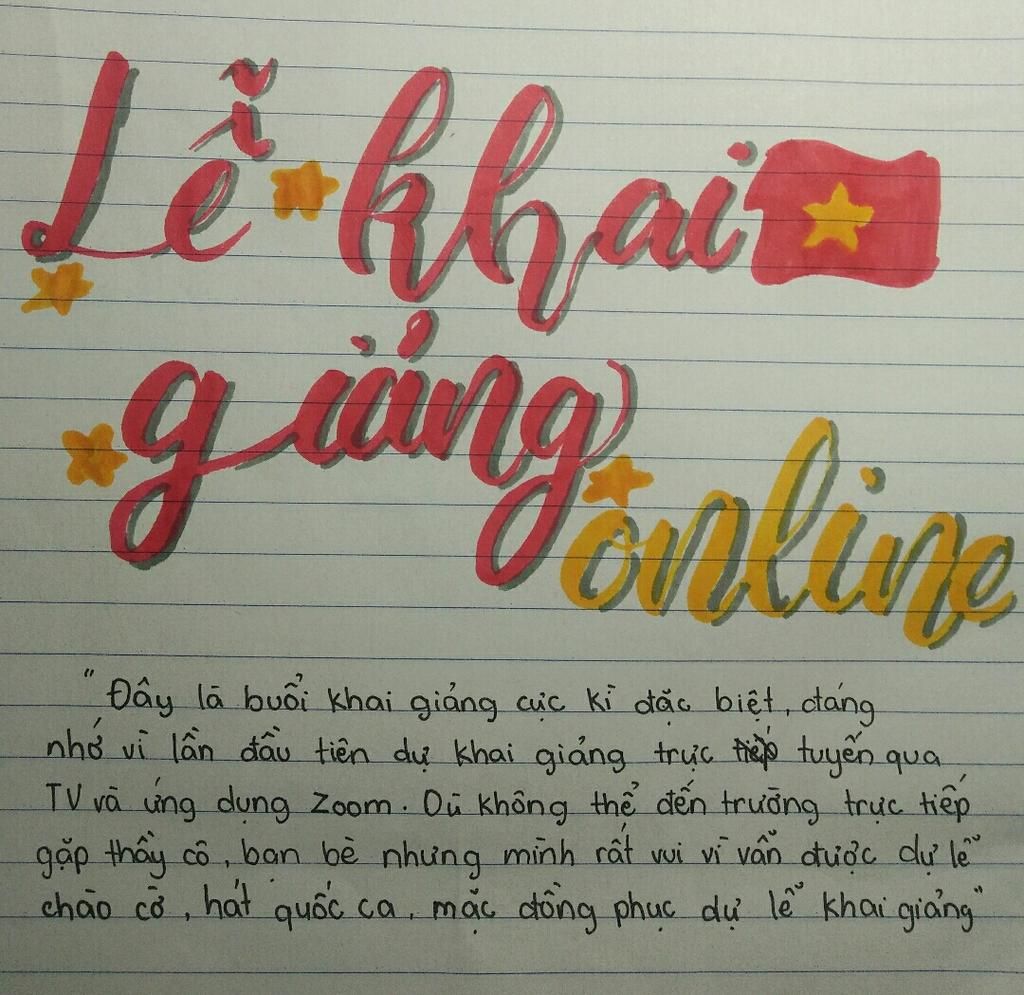 Lễ khai
giảng
online
"Đây là buổi khai giảng cực kì đặc biệt, đáng
nhớ vì lần đầu tiên dự khai giảng trực tuyến qua
TV và ứng dụng Zoom. Dù không thể đến trường trực tiếp
gặp thầy cô, bạn bè nhưng mình rất vui vì vẫn được dự lễ
chào cờ, hát quốc ca, mặc đồng phục dự lễ khai giảng"